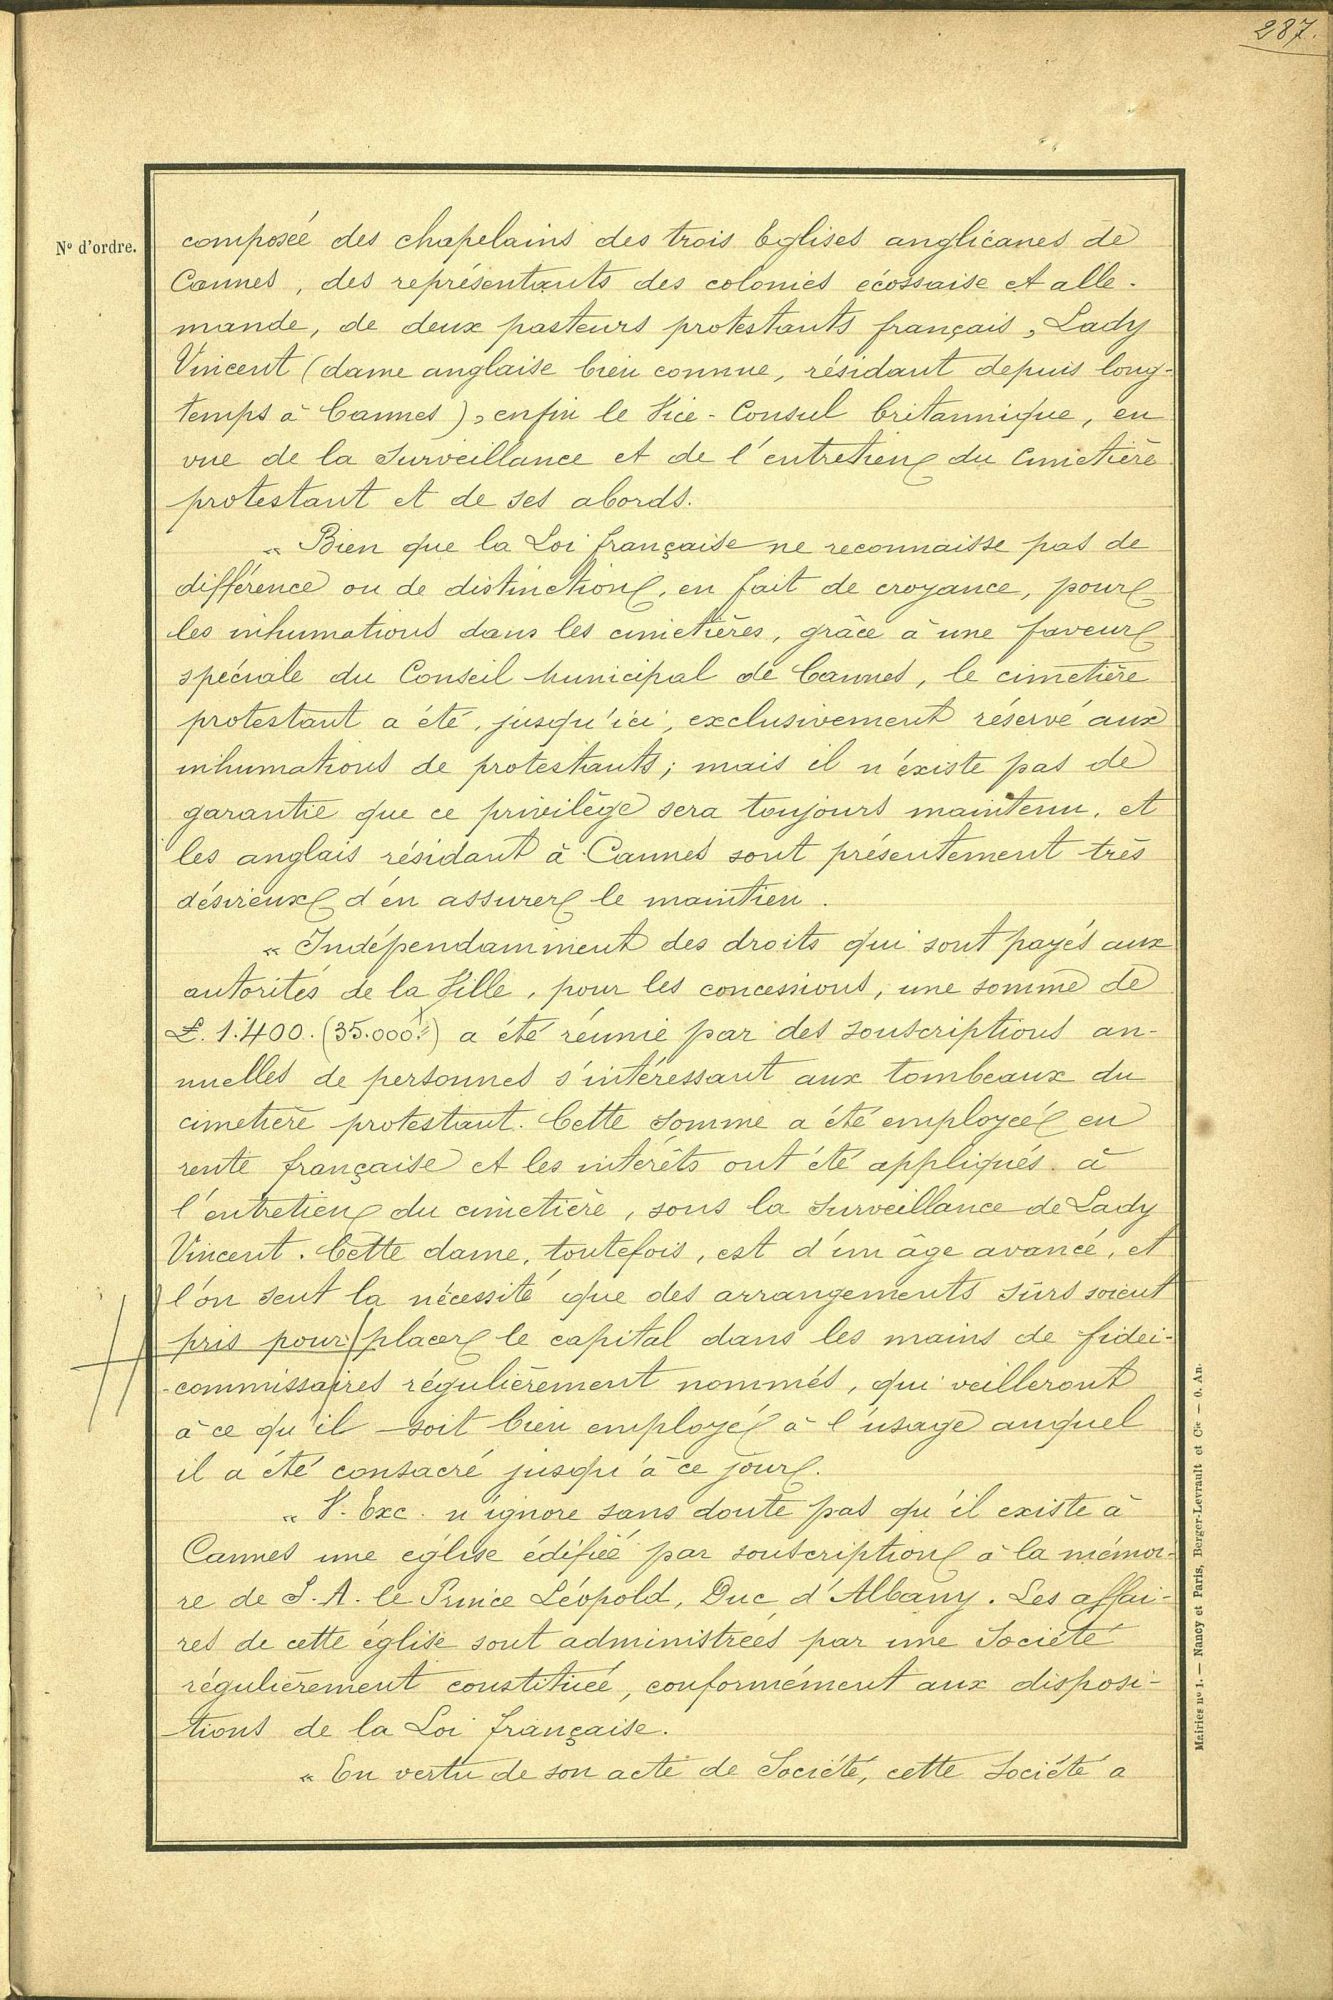 287.
Nº d'ordre.
composée des chapelains des trois Eglises anglicanes de
Cannes, des représentants des colonies écossaise et alle-
mande, de deux pasteurs protestants français, Lady
Vincent (dame anglaise bien connue, résidant depuis long-
temps à Cannes), enfin le Vice-Consul britannique, en
vue de la surveillance et de l'entretien du cimetière
protestant et de ses abords.
« Bien que la Loi française ne reconnaisse pas de
différence ou de distinction, en fait de croyance, pour
les inhumations dans les cimetières, grâce à une faveur
spéciale du Conseil Municipal de Cannes, le cimetière
protestant a été, jusqu'ici, exclusivement réservé aux
inhumations de protestants; mais il n'existe pas de
garantie que ce privilège sera toujours maintenu, et
les anglais résidant à Cannes sont présentement très
désireux d'en assurer le maintien.
« Indépendamment des droits qui sont payés aux
autorités de la Ville, pour les concessions, une somme de
£. 1.400. (35.000f) a été réunie par des souscriptions an-
nuelles de personnes s'intéressant aux tombeaux du
cimetière protestant. Cette somme a été employée en
rente française et les intérêts ont été appliqués à
l'entretien du cimetière, sous la surveillance de Lady
Vincent. Cette dame, toutefois, est d'un âge avancé, et
l'on sent la nécessité que des arrangements sûrs soient
pris pour placer le capital dans les mains de fidei-
-commissaires régulièrement nommés, qui veilleront
à ce qu'il soit bien employé à l'usage auquel
il a été consacré jusqu'à ce jour.
« V. Exc. n'ignore sans doute pas qu'il existe à
Cannes une église édifiée par souscription à la mémoi-
re de S. A. le Prince Léopold, Duc d'Albany. Les affai-
res de cette église sont administrées par une Société
régulièrement constituée, conformément aux disposi-
tions de la Loi française.
« En vertu de son acte de Société, cette Société a
Mairies nº 1. — Nancy et Paris, Berger-Levrault et Cie — O. An.